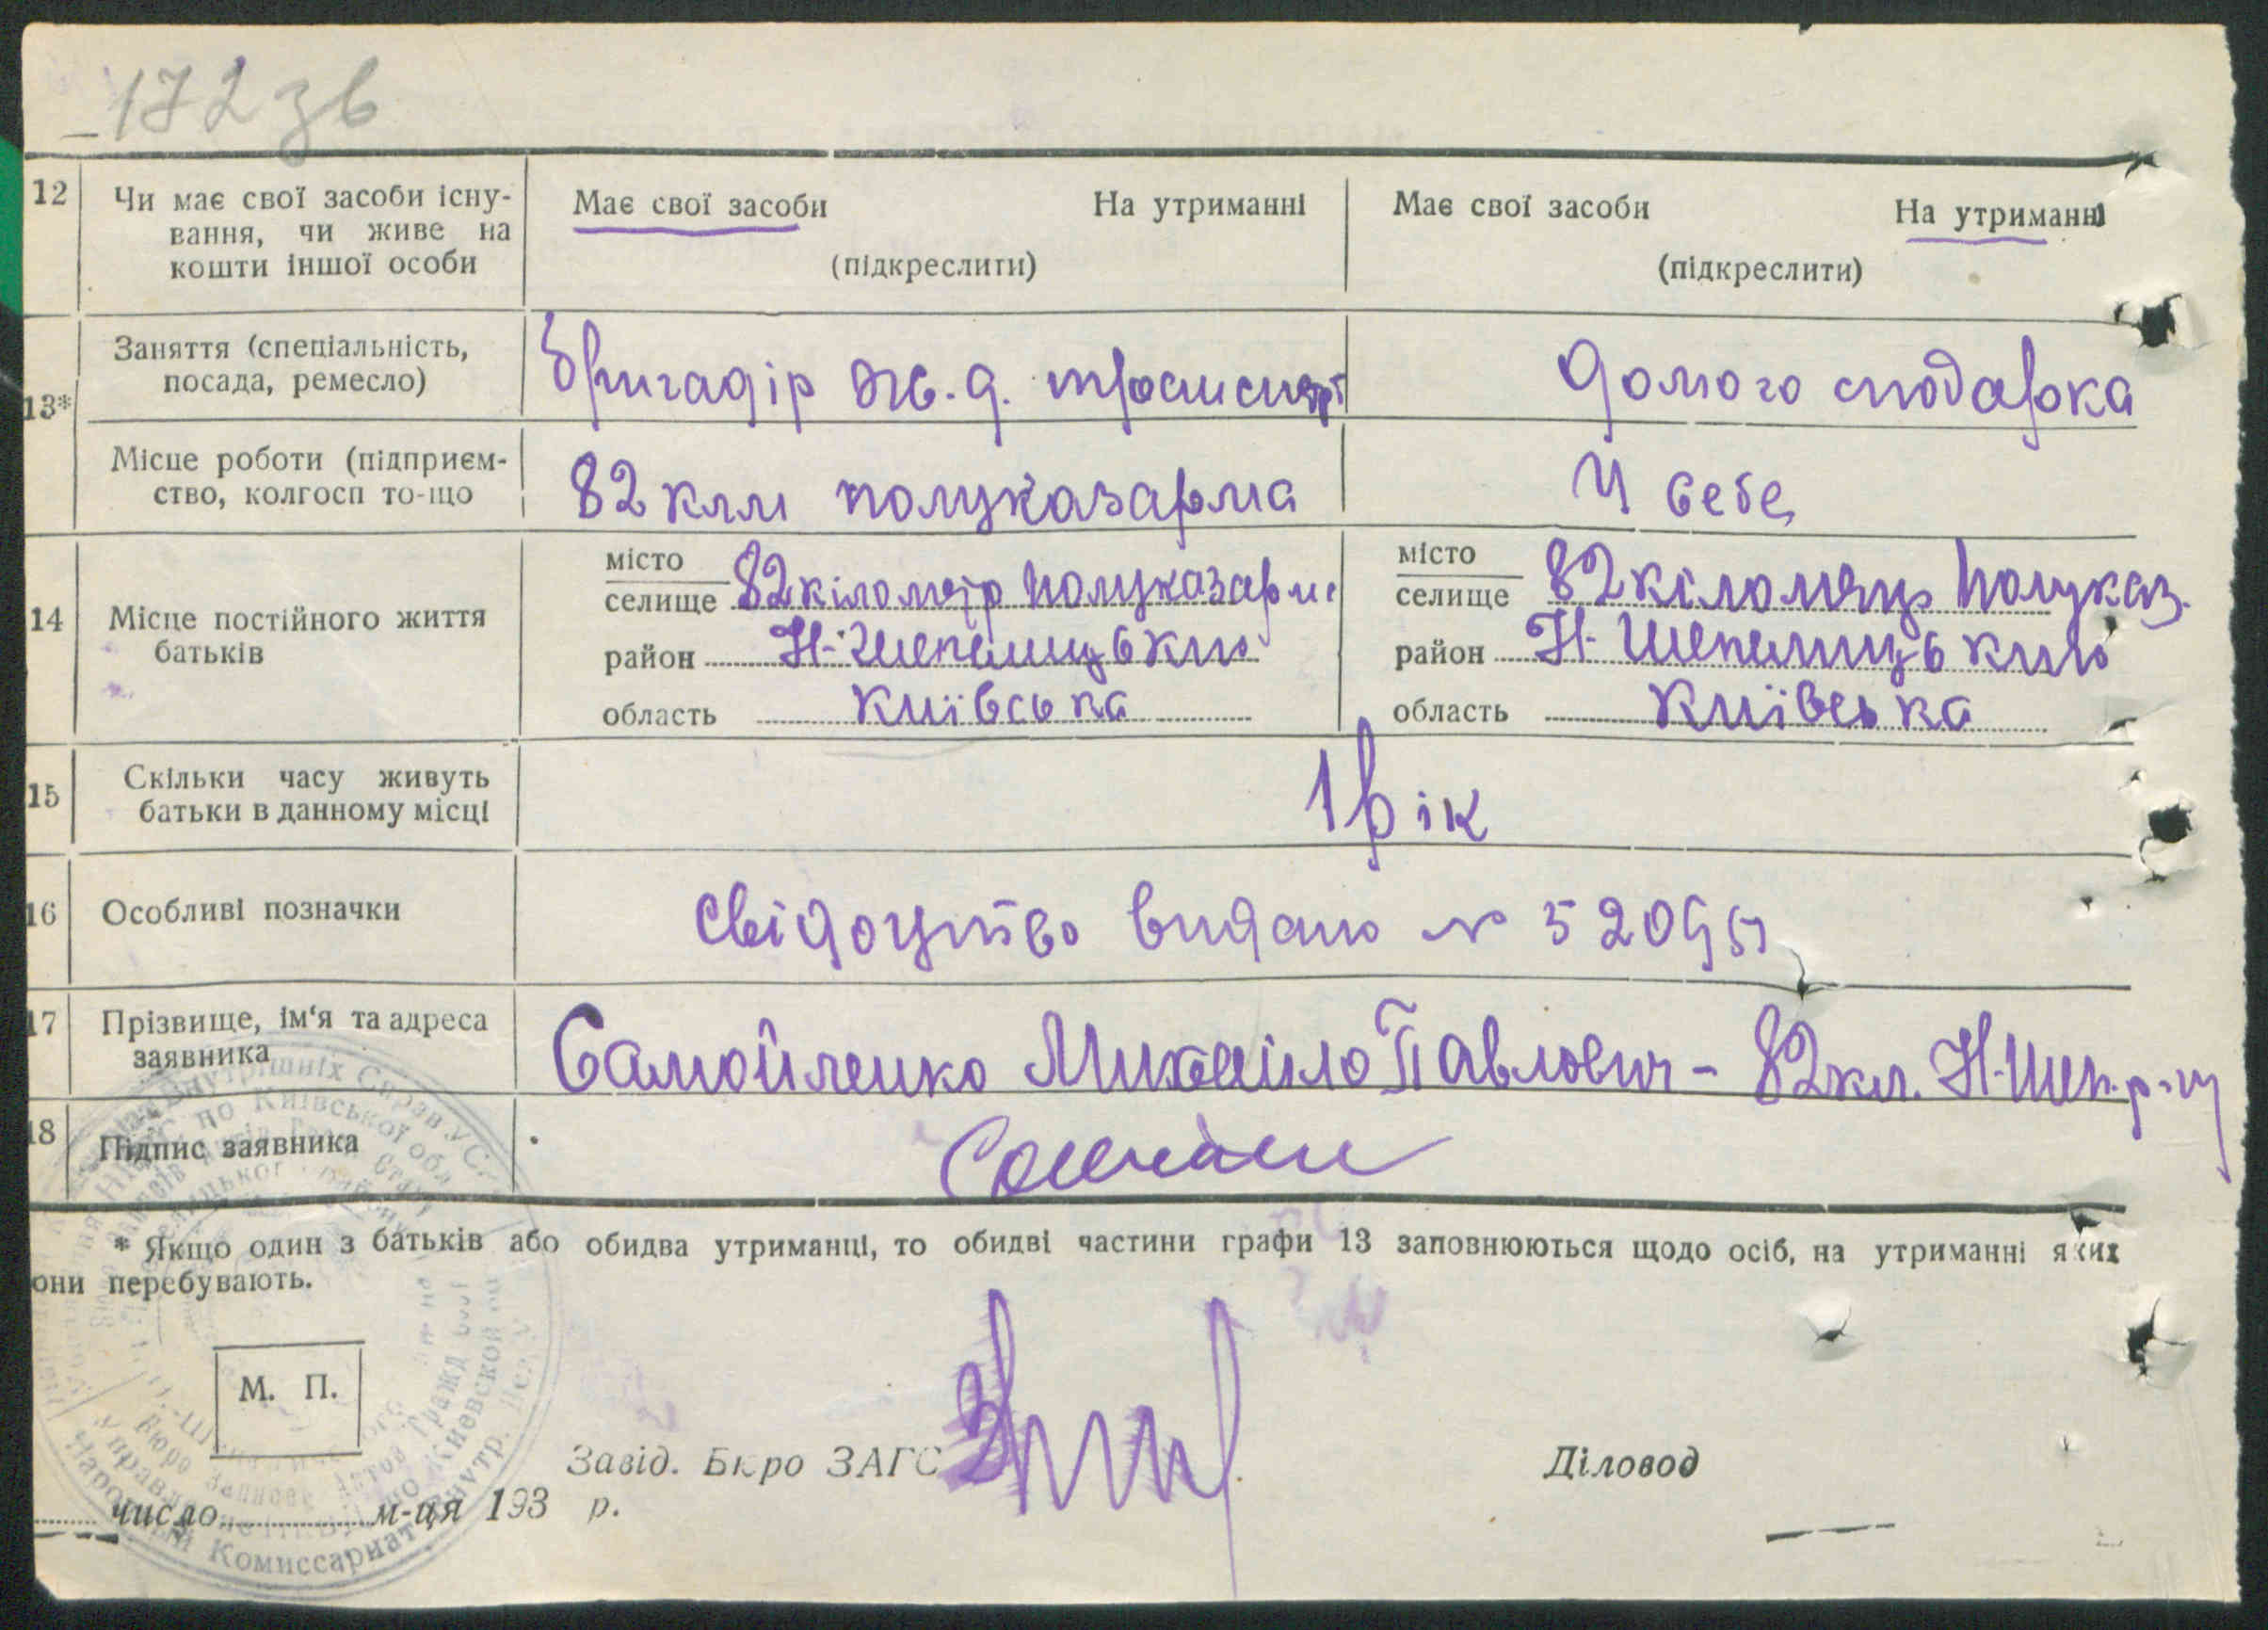 172 зв
12 Чи має свої засоби існу-
вання, чи живе на
кошти іншої особи
Має свої засоби На утриманні
(підкреслити)
Має свої засоби На утриманні
(підкреслити)
13* Заняття (спеціальність,
посада, ремесло)
Бригадір ж.д.
домогосподарка
Місце роботи (підприєм-
ство, колгосп то-що
82 клм полуказарма
У себе
14 Місце постійного життя
батьків
місто
селище 82 кілометр полуказарм
район Н-Шепелицький
область Київська
місто
селище 82 кілометр Полуказ.
район Н-Шепелицький
область Київська
15 Скільки часу живуть
батьки в данному місці
1 рік
16 Особливі позначки
Свідоцтво видано №
17 Прізвище, ім'я та адреса
заявника
Самойленко Михайло Павлович - 82 кл. Н-Шеп. р-ну
18 Підпис заявника
* Якщо один з батьків або обидва утриманці, то обидві частини графи 13 заповнюються щодо осіб, на утриманні яких
они перебувають.
М. П.
Завід. Бюро ЗАГС
Діловод
число м-ця 193 р.